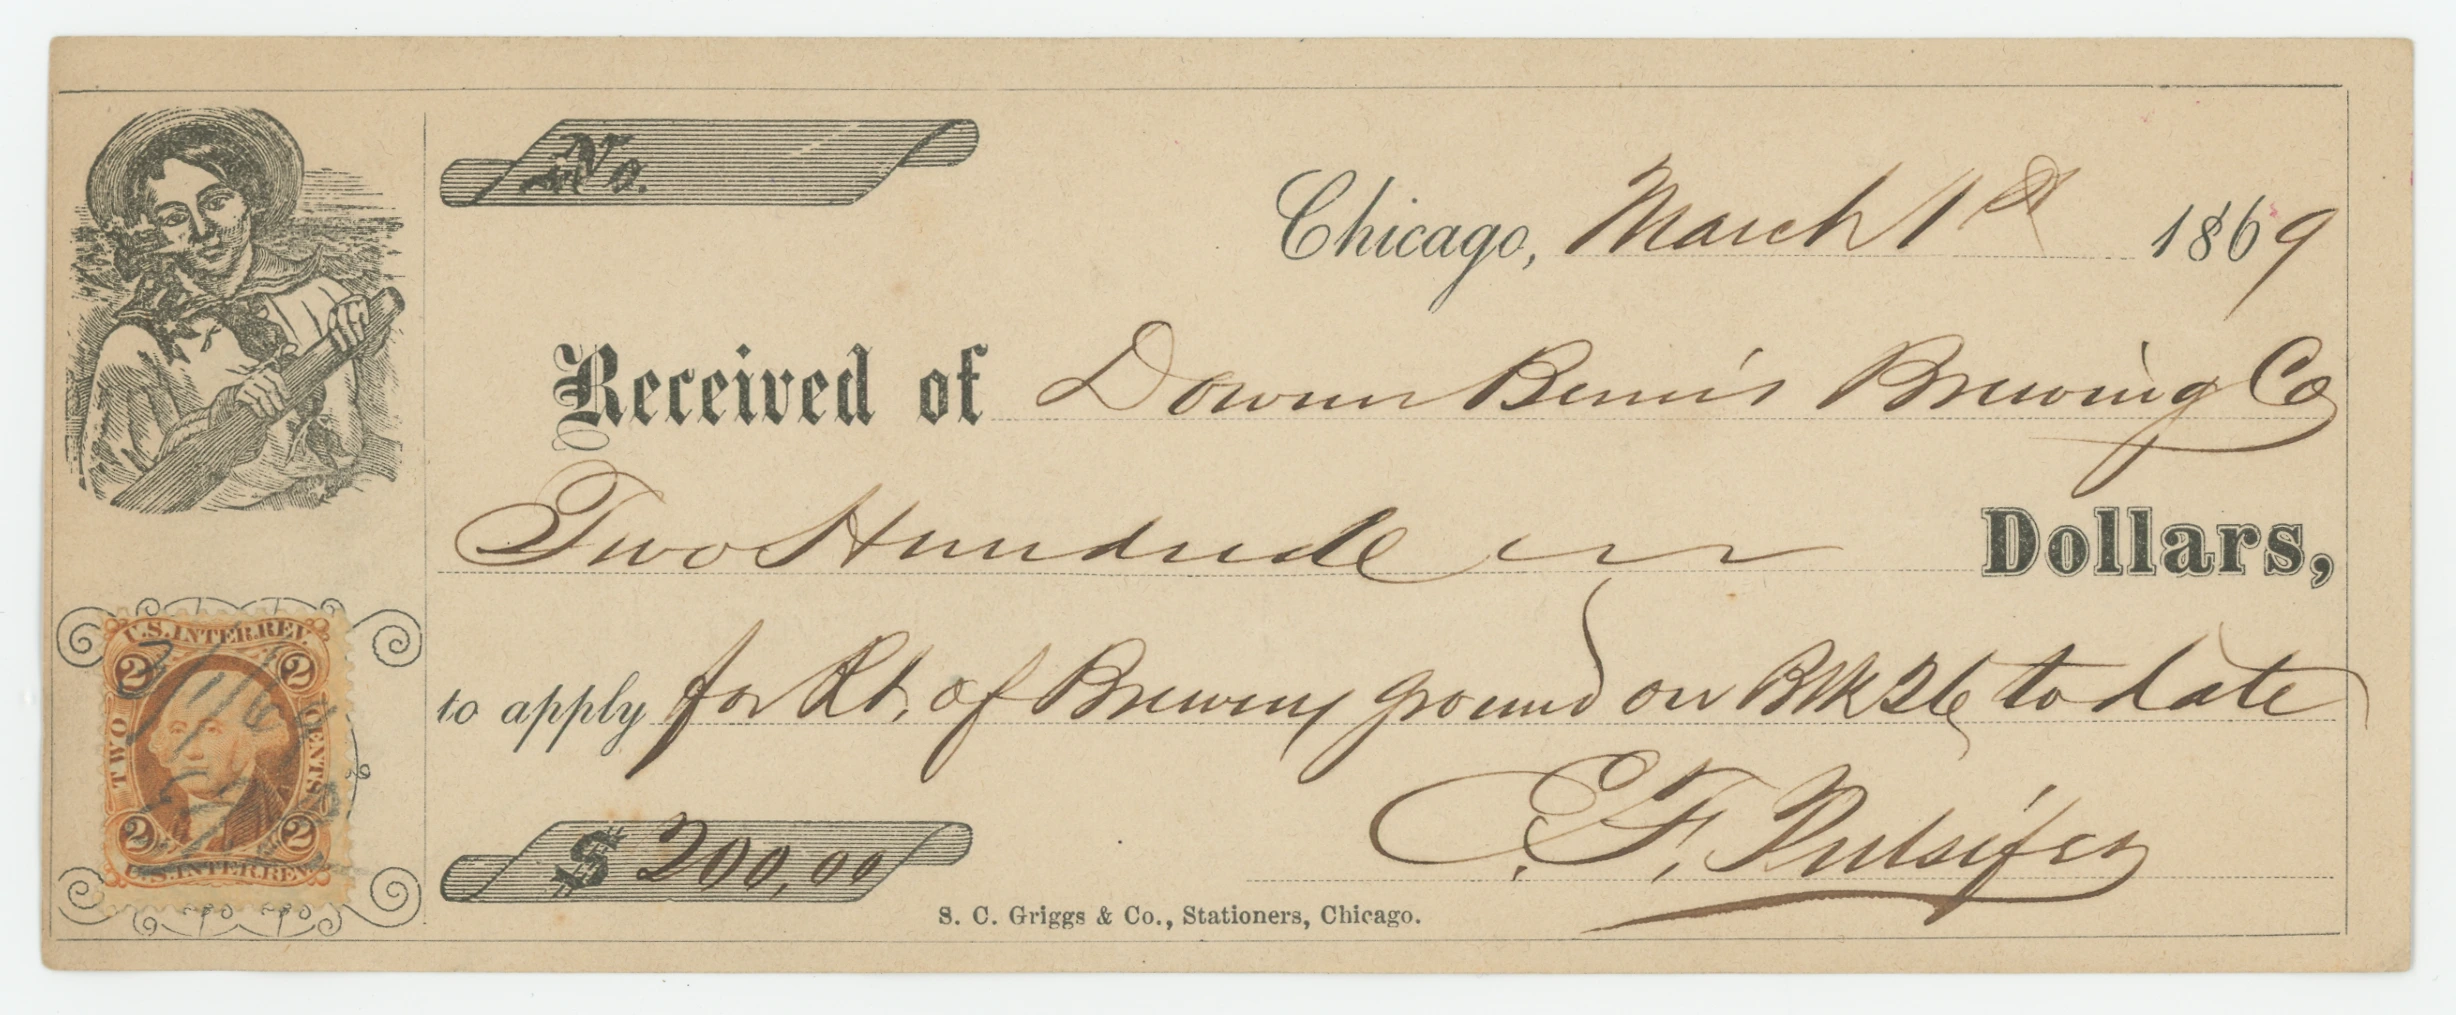 No.
Chicago, March 1st 1869
Received of Downer Bemis Brewing Co
Two Hundred Dollars,
to apply for Rt. of Brewery ground on Blk 26 to date
$ 200,00
E. F. Pulsifer
S. C. Griggs & Co., Stationers, Chicago.
U.S. INTER. REV.
2 2
TWO CENTS
2 2
U.S. INTER. REV.